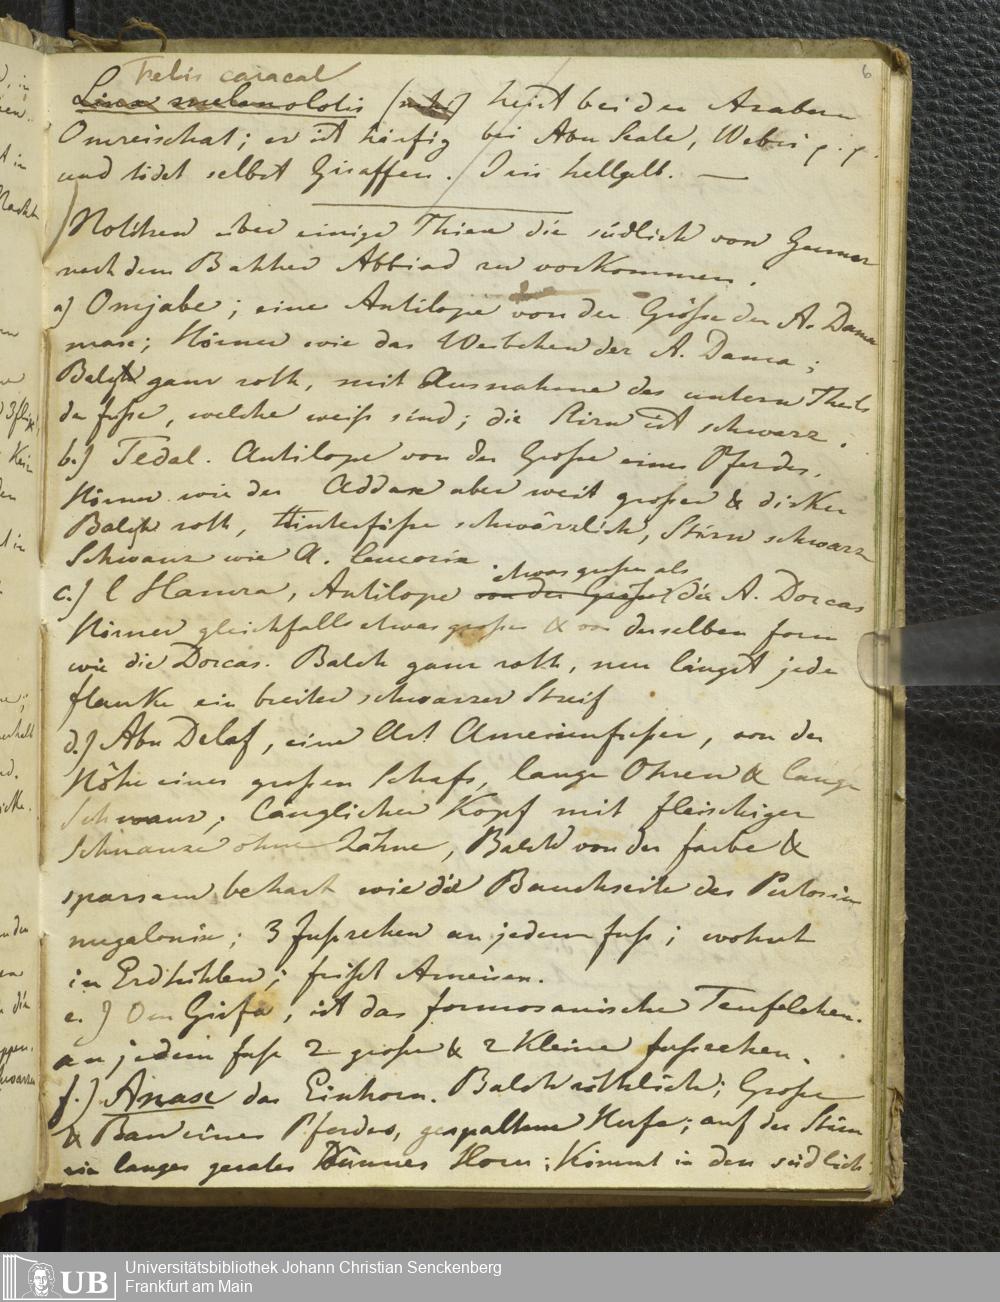 6
Felis caracal
Linx melanolotis heist bei den Arabern
Omreischat; er ist häufig bei Abu Seale, Webis p. p.
und tödet selbst Giraffen. Iris hellgelb. —
Notitzen über einige Thiere die südlich von
nach dem Bahher Abbiad zu vorkommen.
a) Omjabe; eine Antilope von der Größe der A. Dama
Hörner wie das Weibchen der A. Dama;
Balgk ganz roth, mit Ausnahme des untern Theils
der fuße, welche weiß sind; die Stirn ist schwarz.
b.) Tedal. Antilope von der Große eines Pferdes,
Hörner wie der Addax aber weit großer & dicker
Balgk roth, Hinterfüße schwärzlich, Stirn schwarz
Schwanz wie A. leucorix
etwas großer als
c.) l Hamra, Antilope von der Große die A. Dorcas
Hörner gleichfalls etwas großer & von derselben form
wie die Dorcas. Balck ganz roth, nur längst jede
flanke ein breiter schwarzer Streif
d.) Abu Delaf, eine Art Ameisenfreßer, von der
Höhe eines großen Schafs, lange Ohren & lange
Schwanz, länglicher Kopf mit fleischiger
Schnauze ohne Zähne, Balck von der farbe &
sparsam behart wie die Bauchseite des
3 fußzehen an jedem fuß; wohnt
in Erdhöhlen; frißt Ameisen.
e.) Om Girfa, ist das formosanische Teufelchen.
an jedem fuße 2 große & 2 kleine fußzehen.
f.) Anase das Einhorn. Balck röthlich; Große
& Bau eines Pferdes, gespaltene Hufe; auf der Stirn
ein langes gerates Dünnes Horn; kömmt in den südlich
UB
Universitätsbibliothek Johann Christian Senckenberg
Frankfurt am Main